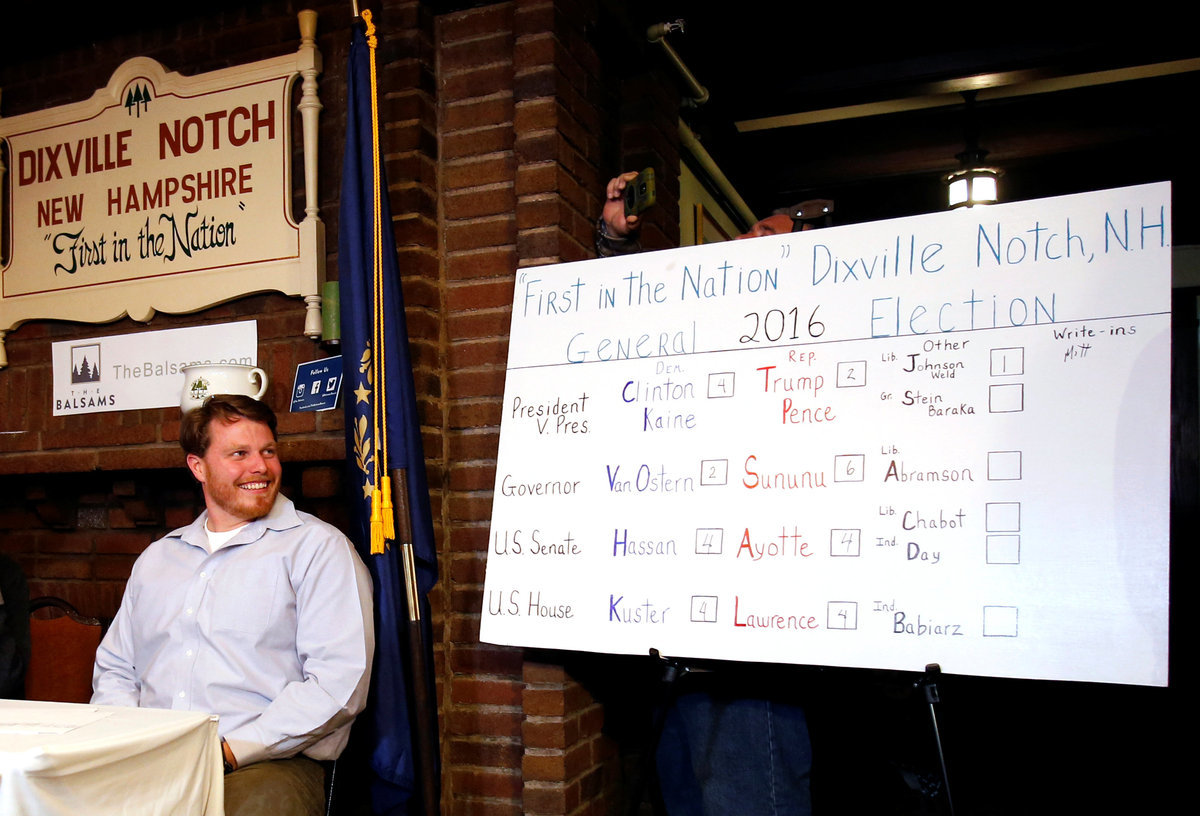 DIXVILLE NOTCH
NEW HAMPSHIRE
"First in the Nation"
THE
BALSAMS
TheBalsams.com
Follow Us
"First in the Nation" Dixville Notch, N.H.
General 2016 Election
Write-ins
Mitt
Dem.
Rep.
Other
President
V. Pres.
Clinton 4
Kaine
Trump 2
Pence
Lib. Johnson 1
Weld
Gr. Stein
Baraka
Governor Van Ostern 2 Sununu 6 Lib. Abramson
U.S. Senate Hassan 4 Ayotte 4 Lib. Chabot
Ind. Day
U.S. House Kuster 4 Lawrence 4 Ind. Babiarz